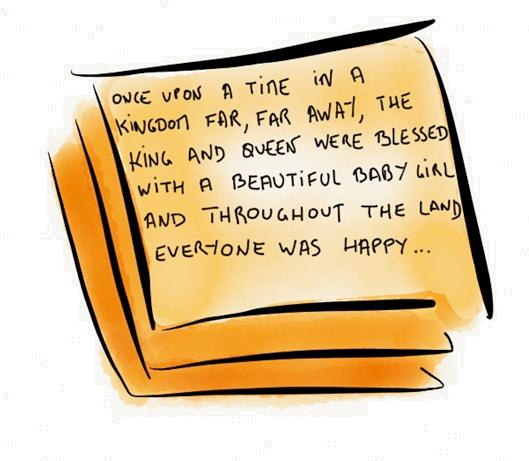 ONCE UPON A TIME IN A
KINGDOM FAR, FAR AWAY, THE
KING AND QUEEN WERE BLESSED
WITH A BEAUTIFUL BABY GIRL
AND THROUGHOUT THE LAND
EVERYONE WAS HAPPY...